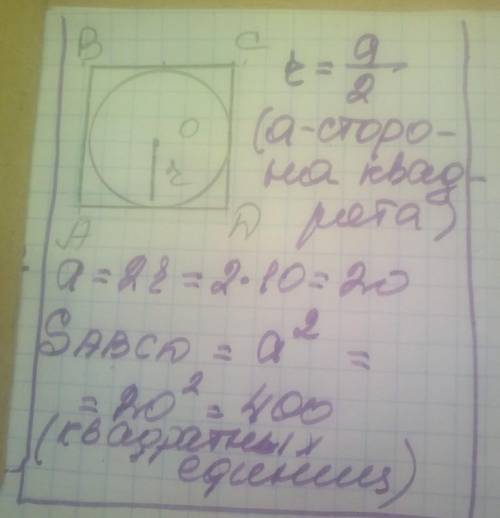 B C
r = a/2
O
(а-сторо-
r
на квад-
рата)
A D
a = 2r = 2·10 = 20
SABCD = a² =
= 20² = 400
(квадратных
единиц)